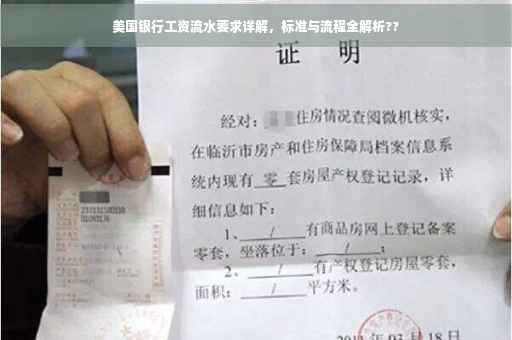 美国银行工资流水要求详解，标准与流程全解析??
证 明
经对：住房情况查阅微机核实，
在临沂市房产和住房保障局档案信息系
统内现有 零 套房屋产权登记记录，详
细信息如下：
1、 / 有商品房网上登记备案
零套，坐落位于： / ；
2、 / 有产权登记房屋零套，
面积： / 平方米。